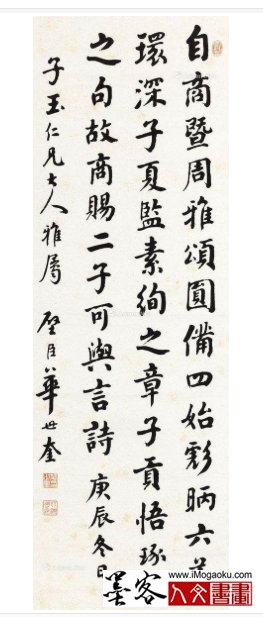 自商暨周雅頌圓備四始彪昞六義
環深子夏監素絢之章子貢悟琢
之句故商賜二子可與言詩 庚辰冬日
子玉仁兄大人雅屬 璧臣華世奎
墨客
www.iMogaoku.com
人文書畫